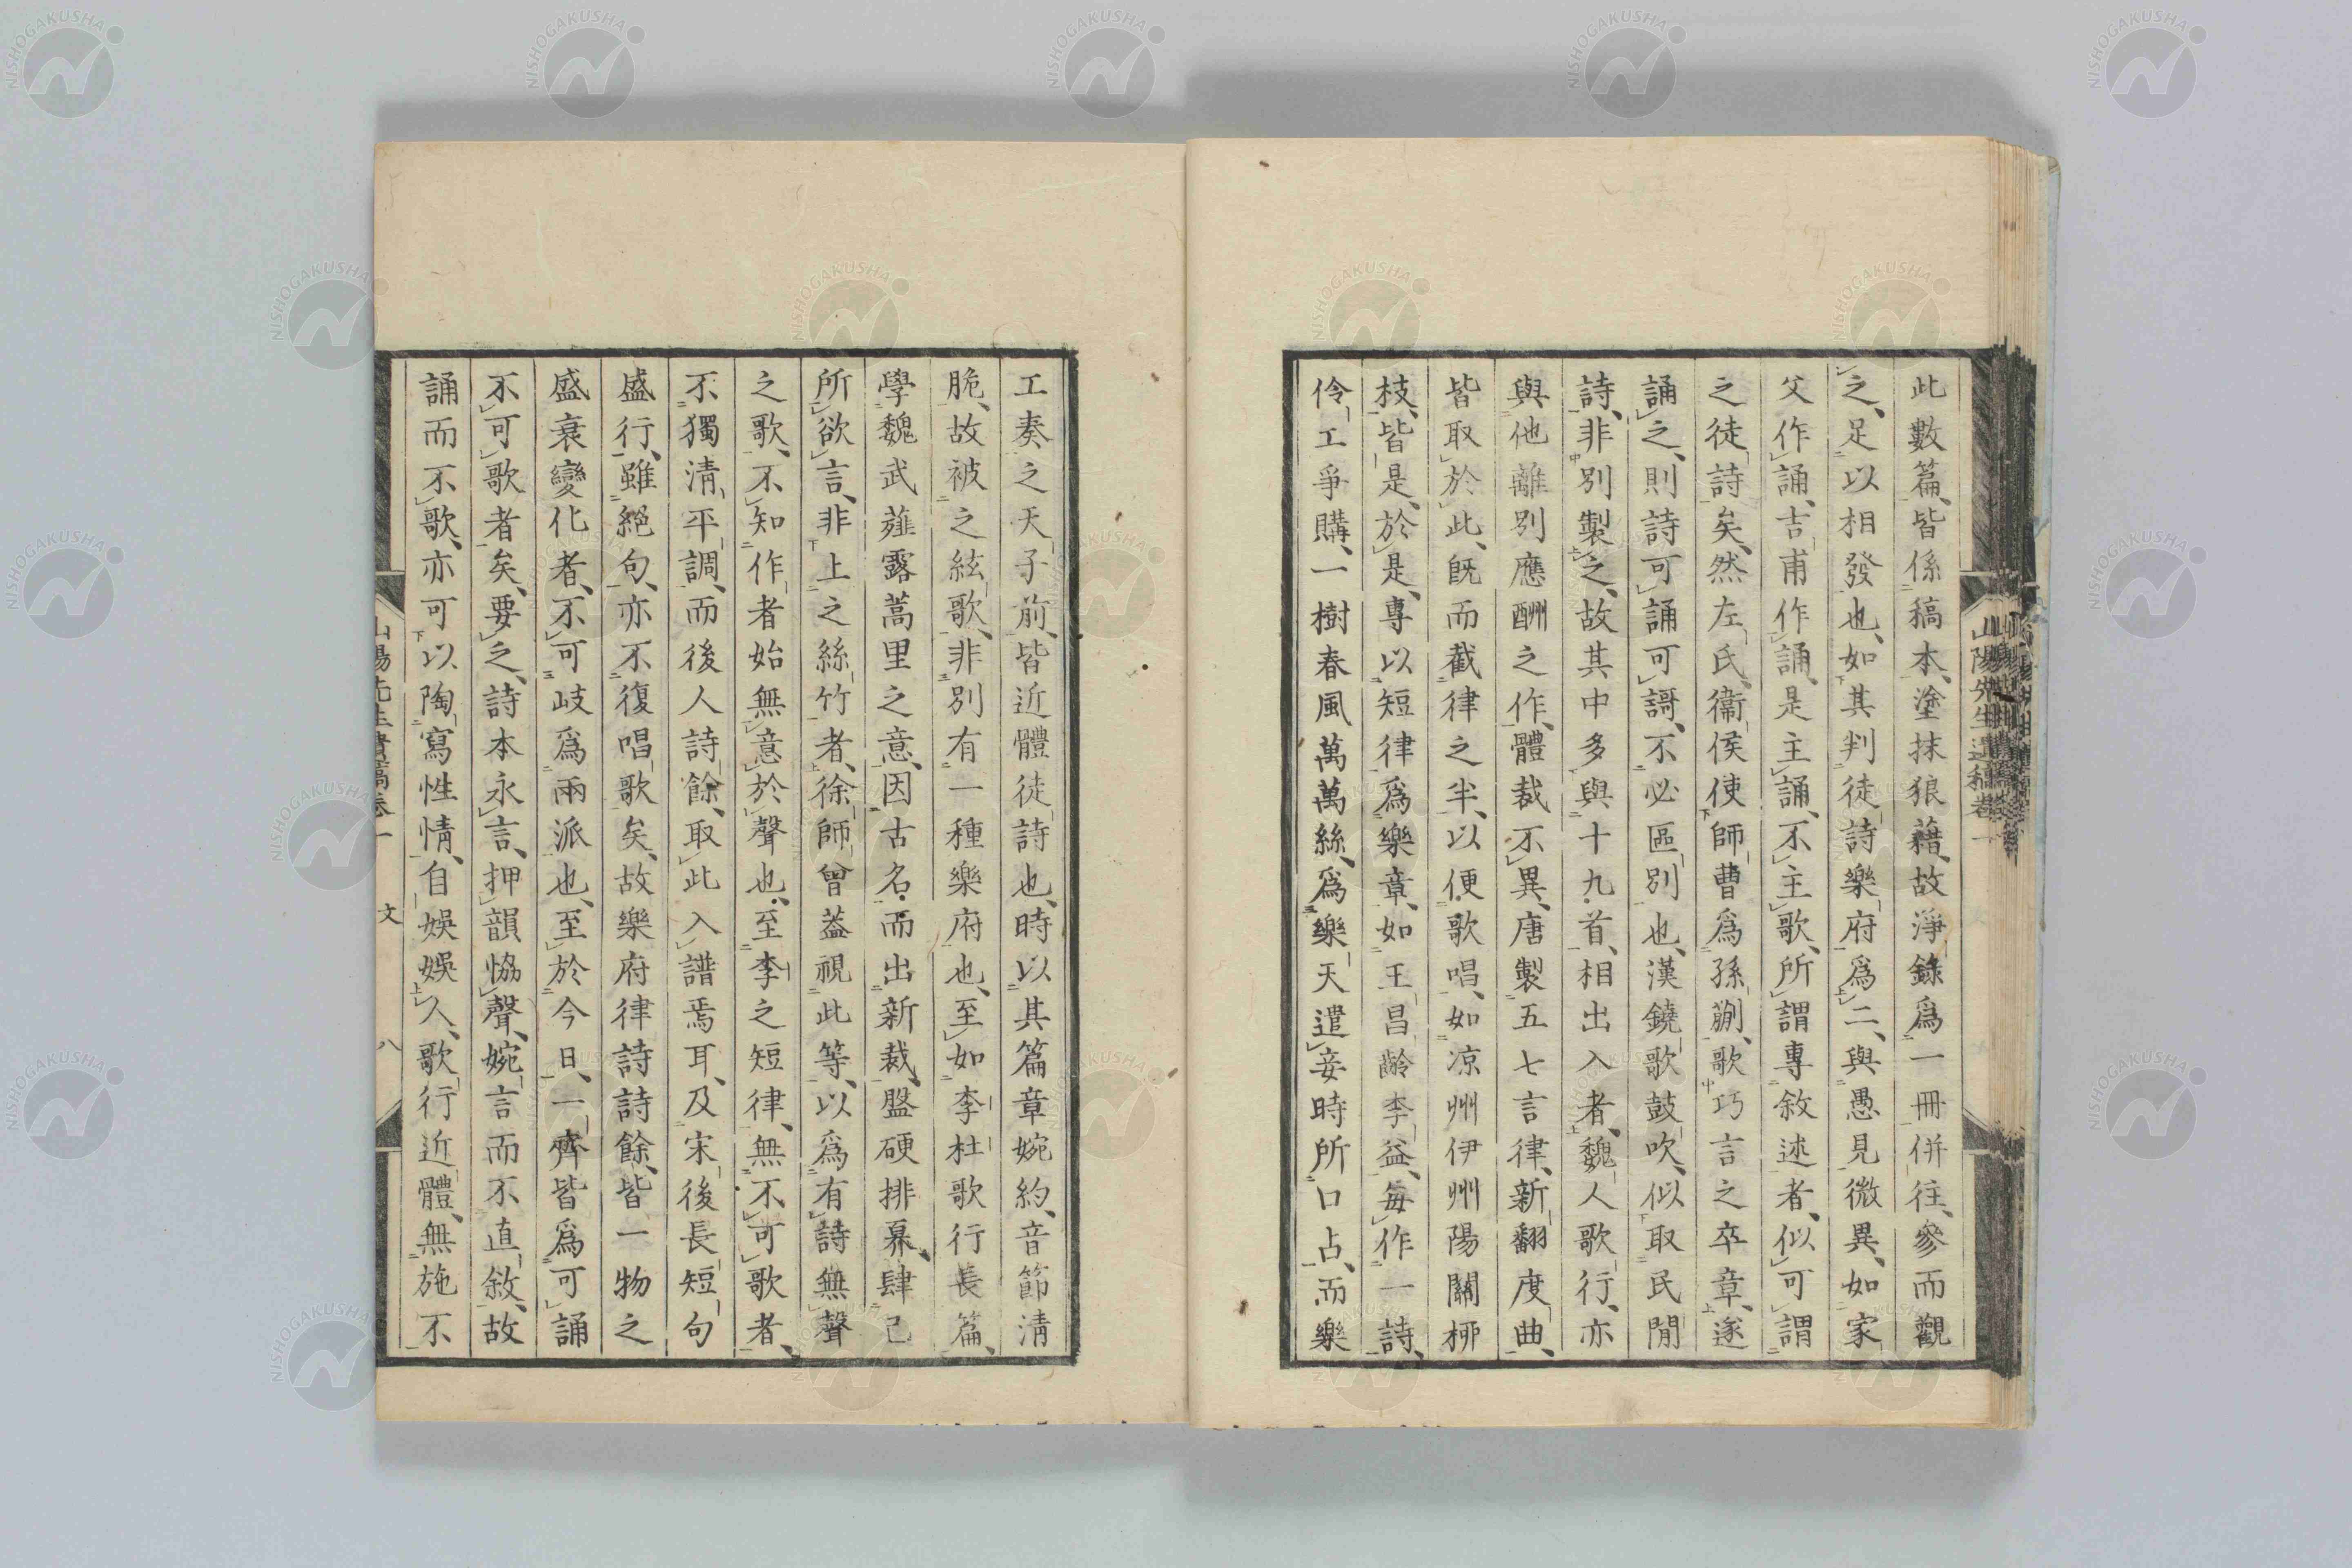 此數篇、皆係稿本、塗抹狼藉、故淨錄爲一冊併往、參而觀
之、足以相發也、如其判徒詩樂府爲二、與愚見微異、如家
父作誦、吉甫作誦、是主誦、不主歌、所謂專敘述者、似可謂
之徒詩矣、然左氏、衞侯使師曹爲孫蒯、歌巧言之卒章、遂
誦之、則詩可誦可謌、不必區別也、漢鐃歌鼓吹、似取民閒
詩、非別製之、故其中多與十九首、相出入者、魏人歌行、亦
與他離別應酬之作、體裁不異、唐製五七言律、新翻度曲、
皆取於此、既而截律之半、以便歌唱、如凉州伊州陽關桺
枝、皆是、於是、專以短律爲樂章、如王昌齡李益、每作一詩、
伶工爭購、一樹春風萬萬絲、爲樂天遣妾時所口占、而樂
工奏之天子前、皆近體徒詩也、時以其篇章婉約、音節清
脆、故被之絃歌、非別有一種樂府也、至如李杜歌行長篇、
學魏武薤露蒿里之意、因古名、而出新裁、盤硬排奡、肆己
所欲言、非上之絲竹者、徐師曾葢視此等、以爲有詩無聲
之歌、不知作者始無意於聲也、至李之短律、無不可歌者、
不獨清平調、而後人詩餘、取此入譜焉耳、及宋後長短句
盛行、雖絕句、亦不復唱歌矣、故樂府律詩詩餘、皆一物之
盛衰變化者、不可岐爲兩派也、至於今日、一齊皆爲可誦
不可歌者矣、要之、詩本永言、押韻恊聲、婉言而不直敘、故
誦而不歌、亦可以陶寫性情、自娛娛人、歌行近體、無施不
山陽先生遺稿卷一
山陽先生遺稿卷一 文 八
NISHOGAKUSHA